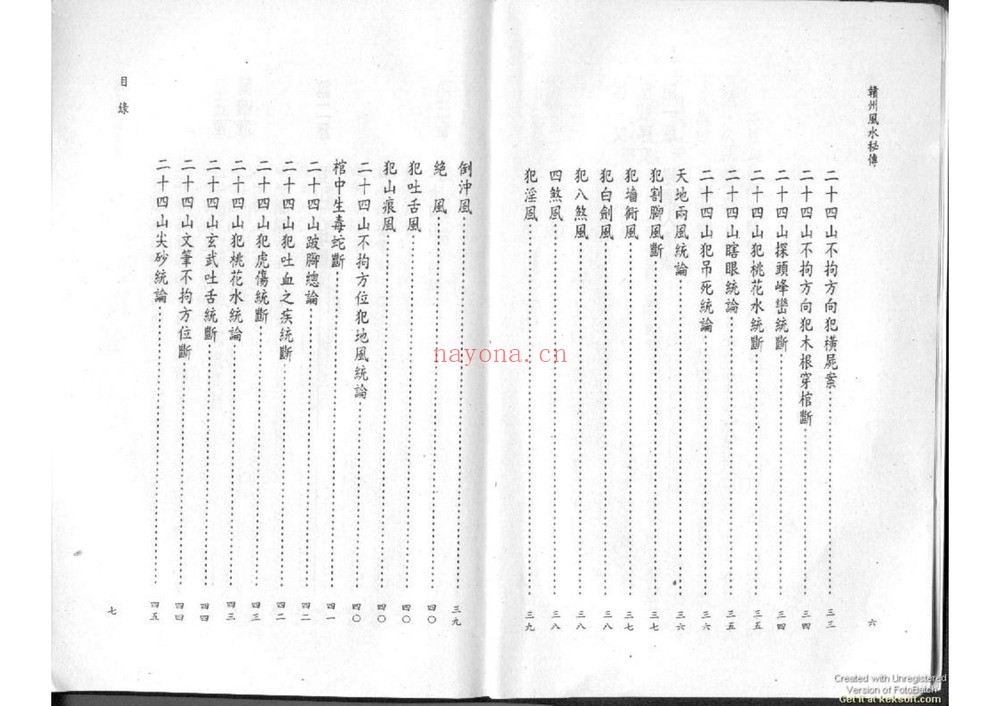 贛州風水秘傳
二十四山不拘方向犯橫屍案……三三
二十四山不拘方向犯木根穿棺斷……三四
二十四山探頭峰巒統斷……三四
二十四山犯桃花水統斷……三五
二十四山瞎眼統論……三五
二十四山犯吊死統論……三六
天地兩風統論……三六
犯割腳風斷……三七
犯墻衖風……三七
犯白劍風……三八
犯八煞風……三八
四煞風……三八
犯淫風……三九
六
目錄
倒沖風……三九
絕風……四〇
犯吐舌風……四〇
犯山痕風……四〇
二十四山不拘方位犯地風統論……四〇
棺中生毒蛇斷……四一
二十四山跛腳總論……四二
二十四山犯吐血之疾統斷……四二
二十四山犯虎傷統斷……四三
二十四山犯桃花水統論……四三
二十四山玄武吐舌統斷……四四
二十四山文筆不拘方位斷……四四
二十四山尖砂統論……四五
七
nayona.cn
Created with Unregistered
Version of FotoBatch
Get it at keksoft.com